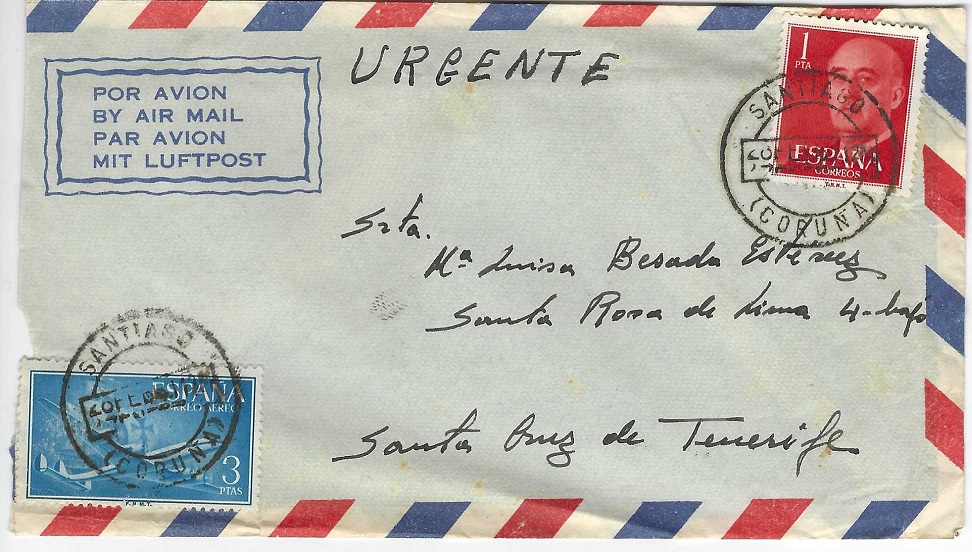 URGENTE
POR AVION
BY AIR MAIL
PAR AVION
MIT LUFTPOST
1
PTA
ESPAÑA
CORREOS
F.N.M.T.
SANTIAGO
(CORUÑA)
Srta.
Mª Luisa Besada Estévez
Santa Rosa de Lima 4-bajo
Santa Cruz de Tenerife
SANTIAGO
(CORUÑA)
ESPAÑA
CORREO AEREO
3
PTAS
F.N.M.T.